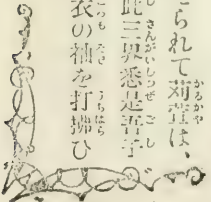 られて苅萱は、
此三界悉是吾子
衣の袖を打掃ひ